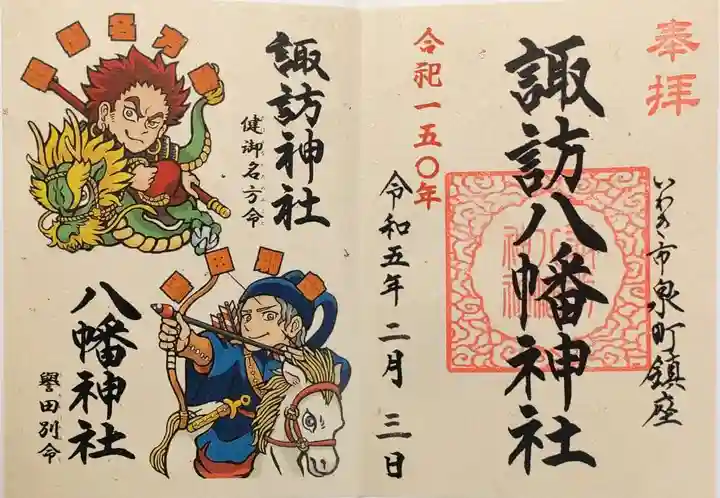 奉拝
いわき市泉町鎮座
諏訪八幡神社
合祀一五〇年
令和五年二月三日
諏訪神社
健御名方命
八幡神社
誉田別命